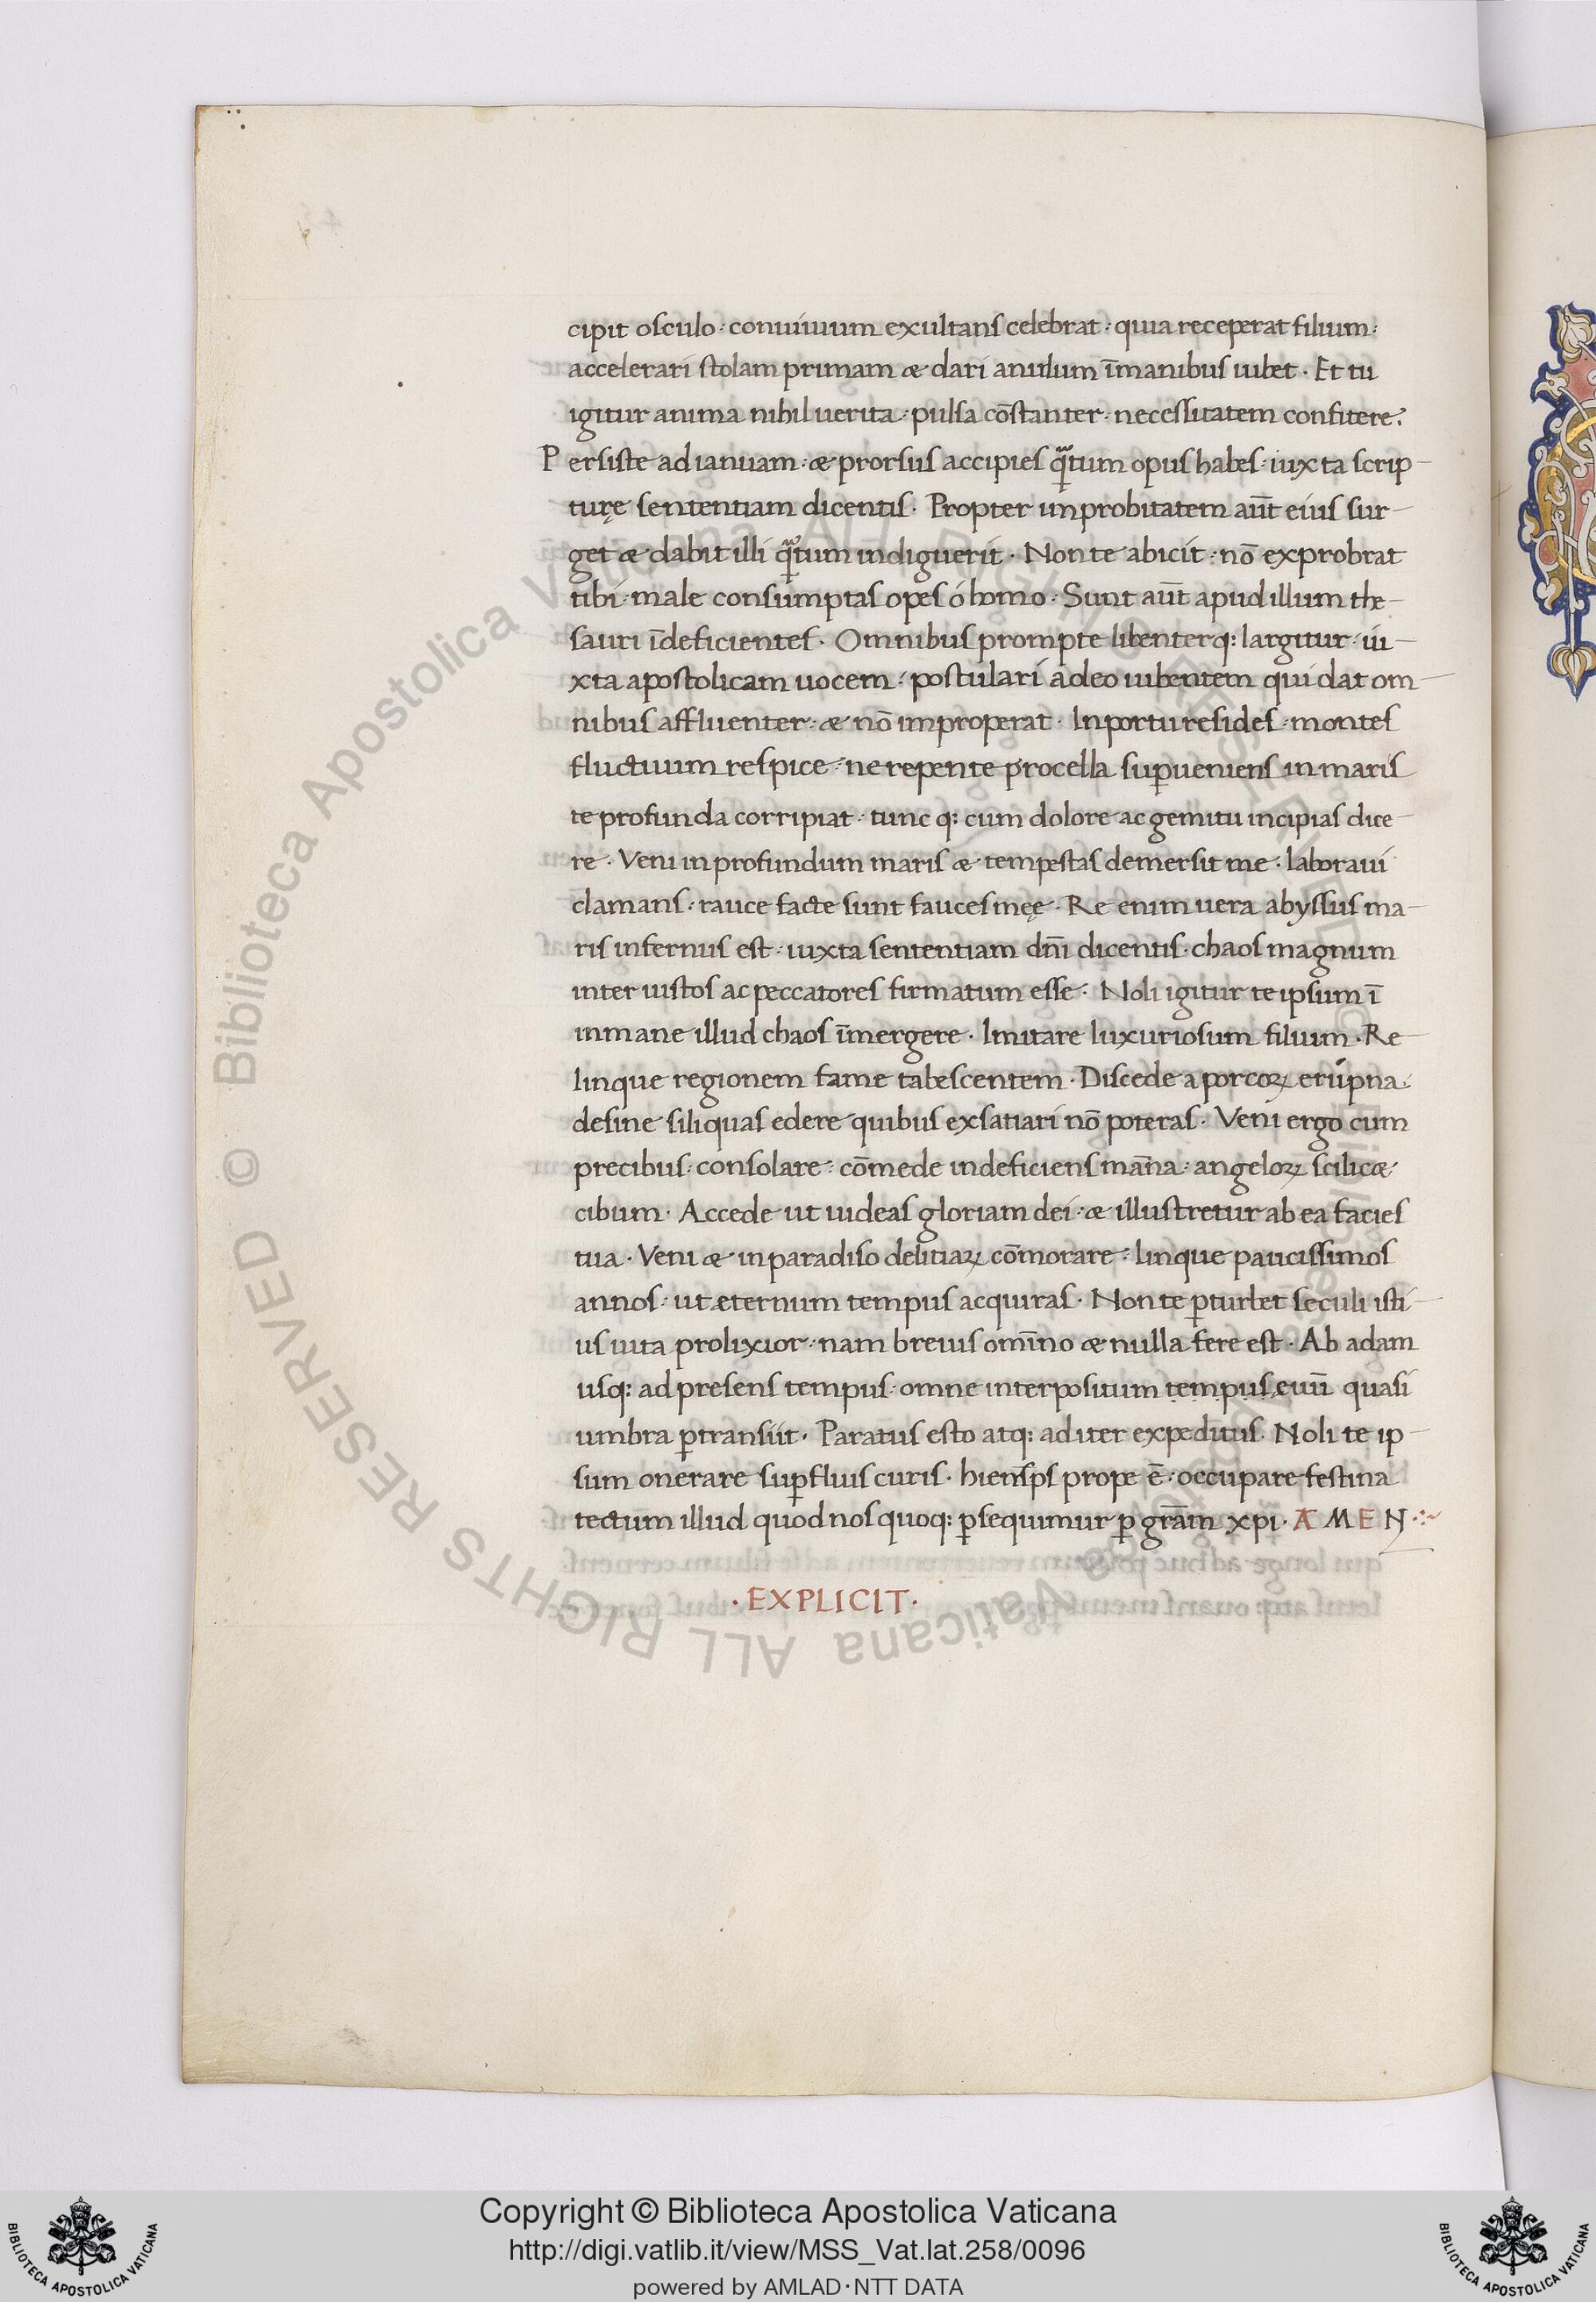 cipit osculo · conuiuium exultans celebrat · quia receperat filium ·
accelerari stolam primam æ dari anulum īmanibus iubet · Et tu
igitur anima nihil uerita · pulsa cōstanter · necessitatem confitere ·
Persiste ad ianuam · æ prorsus accipies qͣtum opus habes · iuxta scrip-
turę sententiam dicentis · Propter improbitatem aūt eius sur-
get æ dabit illi qͣtum indiguerit · Non te abicit · nō exprobrat
tibi · male consumptas opes ó homo · Sunt aūt apud illum the-
sauri īdeficientes · Omnibus prompte libenterq: largitur · iu-
xta apostolicam uocem · postulari a deo iubentem qui dat om-
nibus affluenter · æ nō improperat · In portu resides · montes
fluctuum respice · ne repente procella suꝑueniens in maris
te profunda corripiat · tunc q: cum dolore ac gemitu incipias dice-
re · Veni in profundum maris æ tempestas demersit me · laboraui
clamans · rauce facte sunt fauces meę · Re enim uera abyssus ma-
ris infernus est · iuxta sententiam dn̄i dicentis · chaos magnum
inter iustos ac peccatores firmatum esse · Noli igitur te ipsum ī
inmane illud chaos īmergere · Imitare luxuriosum filium · Re-
linque regionem fame tabescentem · Discede a porcoꝝ erūpna ·
desine siliquas edere quibus exsatiari nō poteras · Veni ergo cum
precibus · consolare · cōmede indeficiens māna · angeloꝝ scilicæ
cibum · Accede ut uideas gloriam dei · æ illustretur ab ea facies
tua · Veni æ in paradiso delitiaꝝ cōmorare · linque paucissimos
annos · ut æternum tempus acquiras · Non te ꝑturbet seculi isti-
us uita prolixior · nam breuis omīno æ nulla fere est · Ab adam
usq: ad presens tempus · omne interpositum tempus euū quasi
umbra ꝑtransiit · Paratus esto atq: ad iter expeditus · Noli te ip-
sum onerare suꝑfluis curis · hiensps prope ē · occupare festina
tectum illud quod nos quoq: ꝑsequimur ꝑ grām xpi · AMEN ·:~
· EXPLICIT ·
© Biblioteca Apostolica Vaticana ALL RIGHTS RESERVED
Copyright © Biblioteca Apostolica Vaticana
http://digi.vatlib.it/view/MSS_Vat.lat.258/0096
powered by AMLAD·NTT DATA
BIBLIOTECA APOSTOLICA VATICANA
BIBLIOTECA APOSTOLICA VATICANA